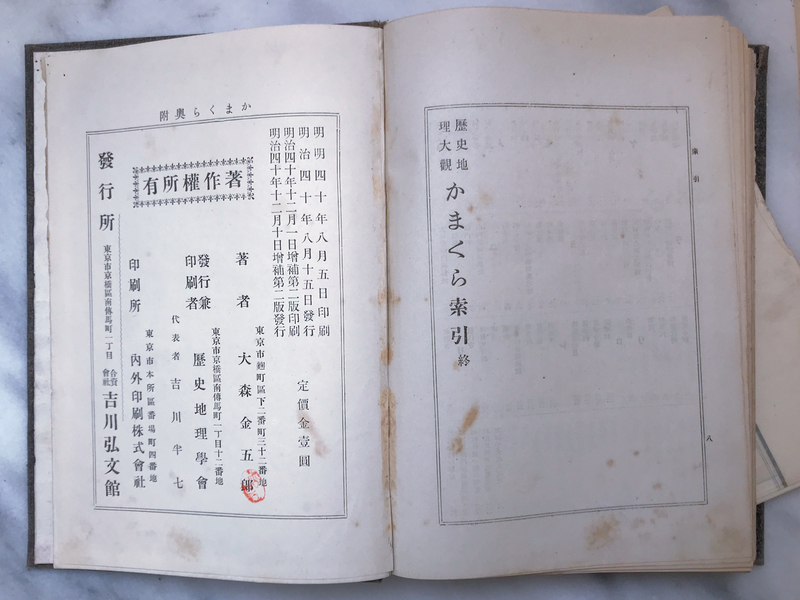 索引
八
歷史地
理大觀
かまくら索引 終
かまくら奥附
明治四十年八月五日印刷
明治四十年八月十五日發行
明治四十年十二月一日增補第二版印刷
明治四十年十二月十日增補第二版發行
定價金壹圓
著作權所有
東京市麴町區下二番町三十二番地
著者 大森金五郎
東京市京橋區南傳馬町一丁目十二番地
發行兼
印刷者 歷史地理學會
代表者 吉川半七
東京市本所區番場町四番地
印刷所 內外印刷株式會社
發行所 東京市京橋區南傳馬町一丁目 合資會社 吉川弘文館